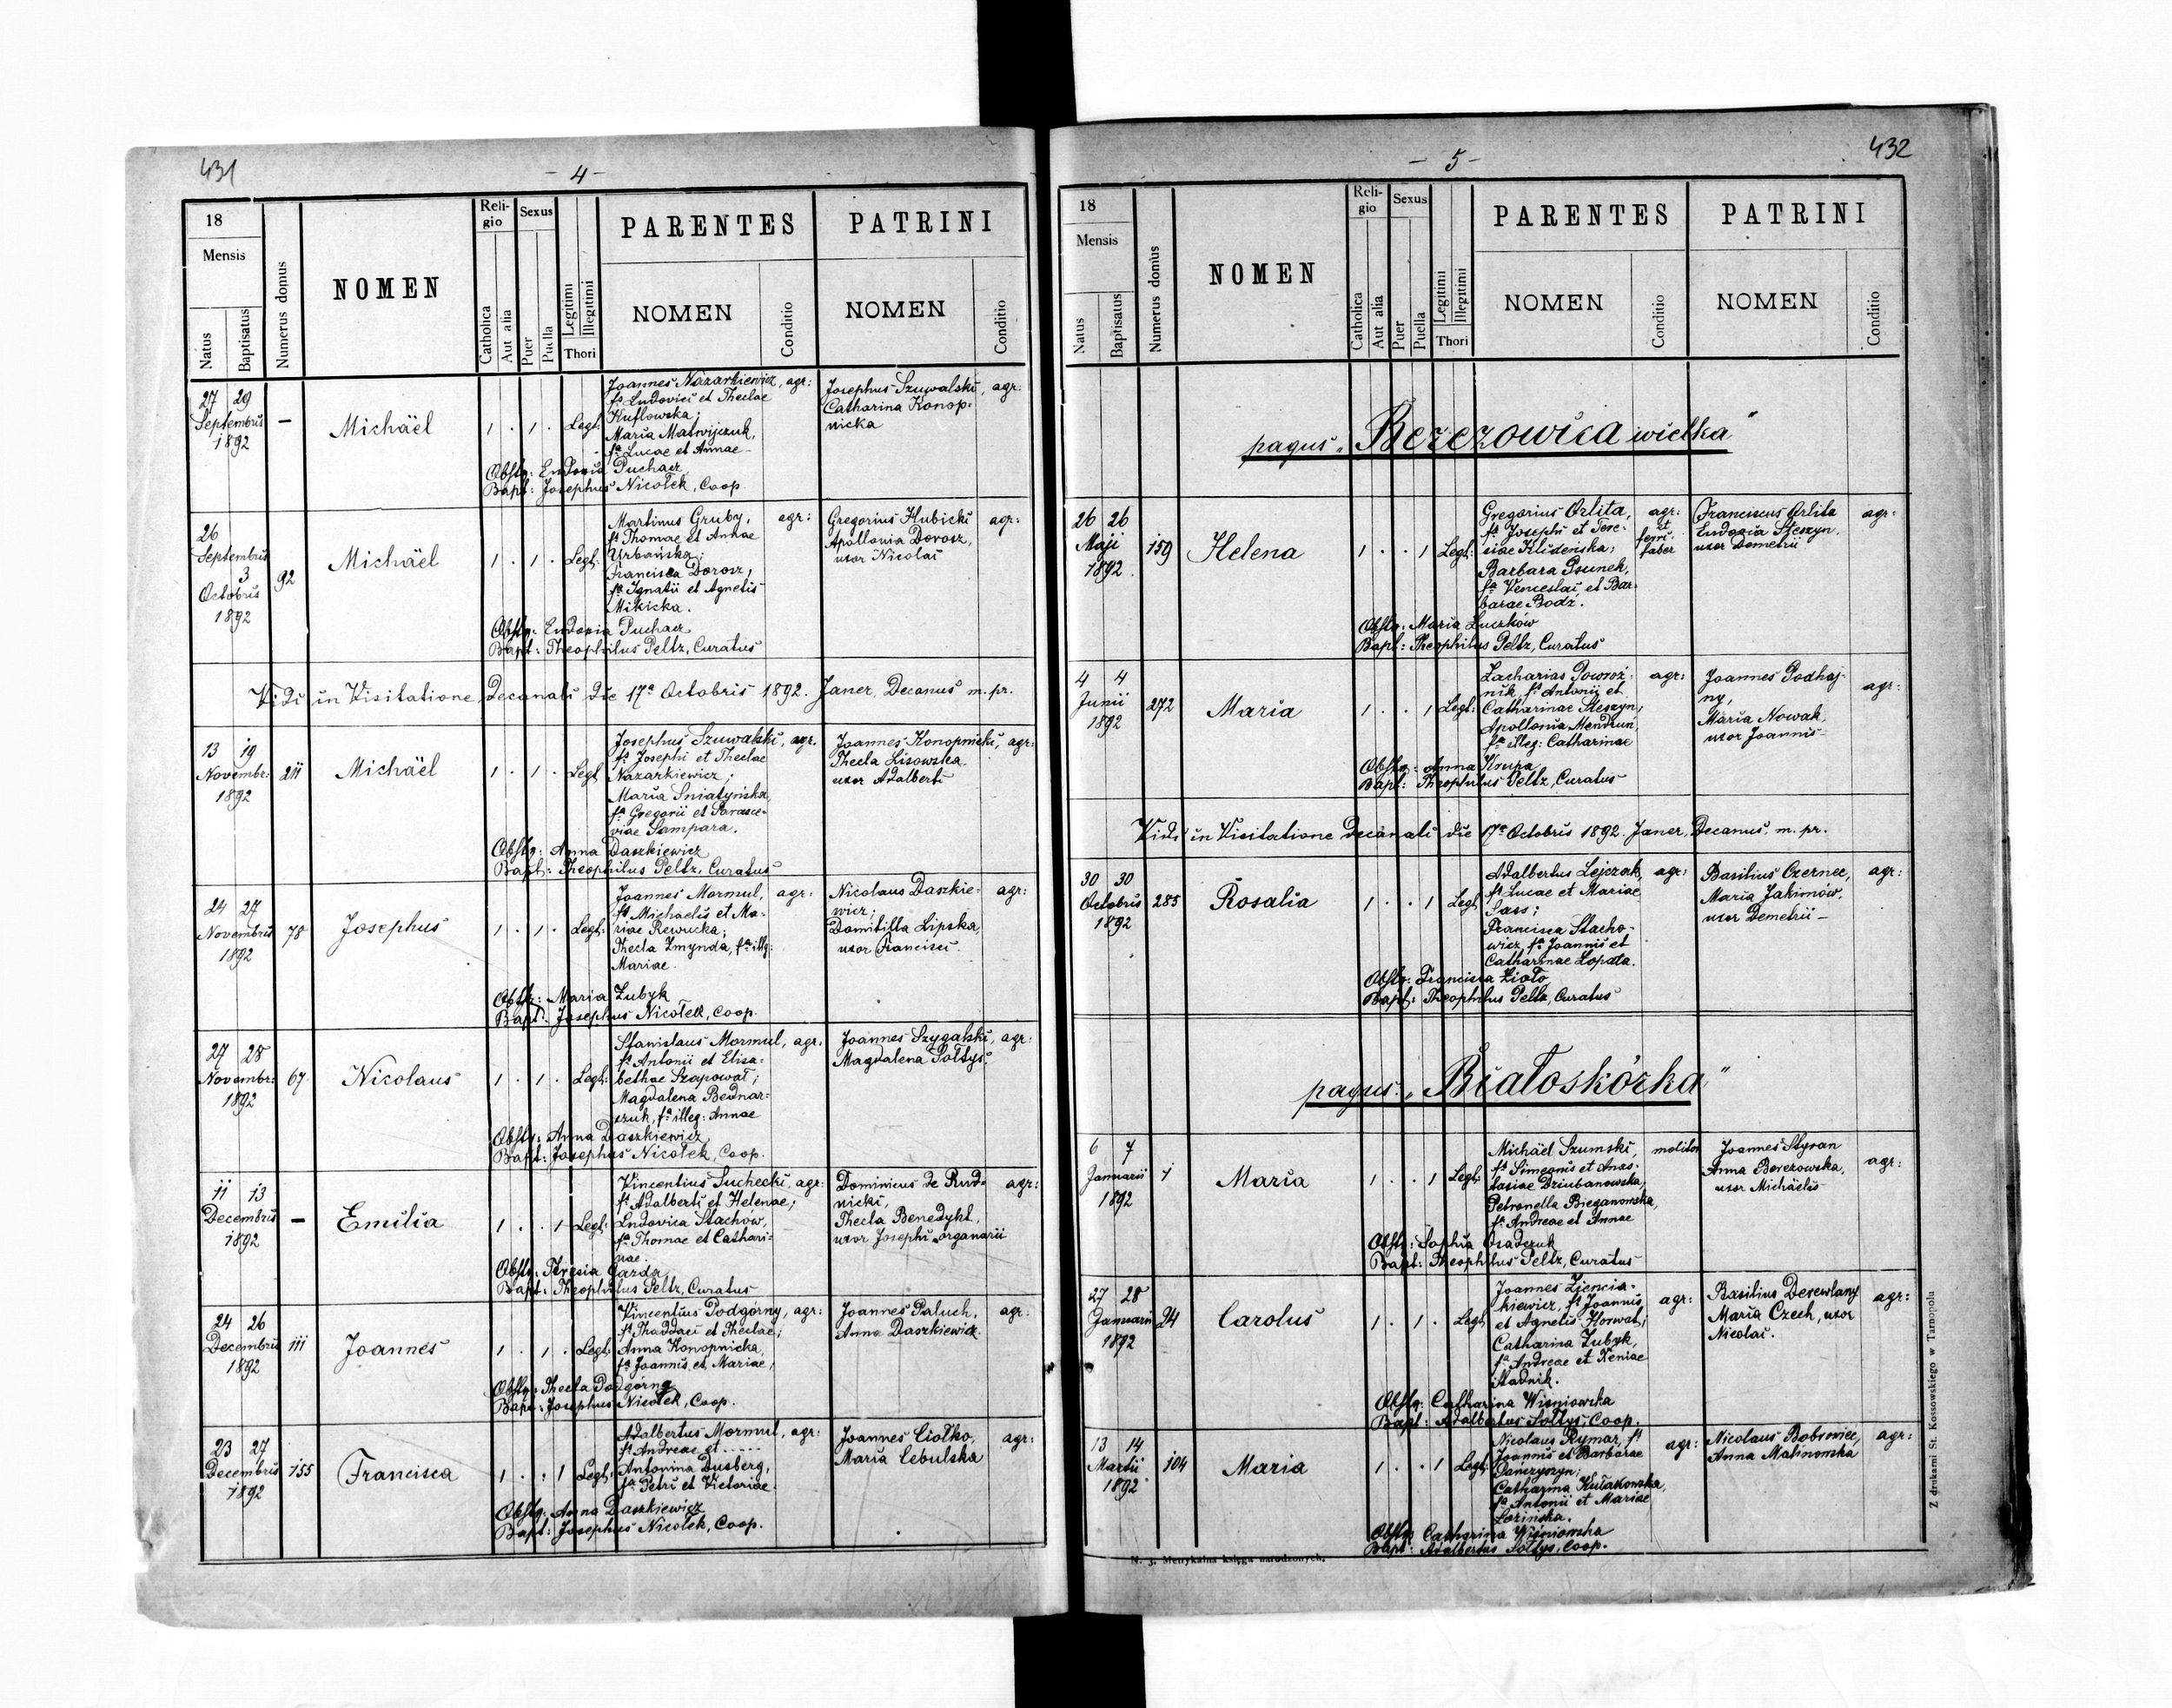 431
- 4 -
18
Mensis
Natus
Baptisatus
Numerus domus
NOMEN
Reli-
gio
Catholica
Aut alia
Sexus
Puer
Puella
Legitimi
Illegitimi
Thori
PARENTES
NOMEN
Conditio
PATRINI
NOMEN
Conditio
27 29
Septembris
1892
-
Michäel
1 . 1 . Legt:
Joannes Nazarkiewicz, agr:
fs Ludovici et Theclae
Kutlowska;
Maria Matwijczuk,
fa Lucae et Annae
Josephus Szuwalski, agr:
Catharina Konop-
nicka
Obstr: Eudoxia Puchacz
Bapt: Josephus Nicołek, Coop.
26
Septembris
3
Octobris
1892
92
Michäel
1 . 1 . Legt:
Martinus Gruby, agr:
fs Thomae et Annae
Urbańska;
Francisca Dorosz,
fa Ignatii et Agnetis
Mikicka.
Gregorius Hubicki agr:
Apollonia Dorosz,
uxor Nicolai
Obstr: Eudoxia Puchacz
Bapt: Theophilus Peltz, Curatus
Vidi in Visitatione Decanali die 17a Octobris 1892. Janer, Decanus m. pr.
13 19
Novembr:
1892
211
Michäel
1 . 1 . Legt
Josephus Szuwalski, agr.
fs Josephi et Theclae
Nazarkiewicz;
Maria Sniatyńska,
fa Gregorii et Parasce-
viae Sampara.
Joannes Konopnicki, agr:
Thecla Lisowska
uxor Adalberti
Obstr: Anna Daszkiewicz
Bapt: Theophilus Peltz, Curatus
24 27
Novembris
1892
78
Josephus
1 . 1 . Legt:
Joannes Mormul, agr:
fs Michaelis et Ma-
riae Rewucka;
Thecla Zmynda, fa illg:
Mariae.
Nicolaus Daszkie- agr:
wicz;
Domitilla Lipska,
uxor Francisci.
Obstr: Maria Zubyk
Bapt: Josephus Nicołek, Coop.
27 28
Novembr:
1892
67
Nicolaus
1 . 1 . Legt:
Stanislaus Mormul, agr:
fs Antonii et Elisa-
bethae Szapował;
Magdalena Bednar-
czuk, fa illeg: Annae
Joannes Szygalski, agr:
Magdalena Sołtys.
Obstr: Anna Daszkiewicz
Bapt: Josephus Nicołek, Coop.
11 13
Decembris
1892
-
Emilia
1 . . 1 Legt:
Vincentius Suchecki, agr:
fs Adalberti et Helenae;
Ludovica Stachów,
fa Thomae et Cathari-
nae.
Dominicus de Rud- agr:
nicki,
Thecla Benedykt,
uxor Josephi organarii
Obstr: Theresia Gazda
Bapt: Theophilus Peltz, Curatus
24 26
Decembris
1892
111
Joannes
1 . 1 . Legt:
Vincentius Podgórny, agr:
fs Thaddaei et Theclae;
Anna Konopnicka,
fa Joannis et Mariae;
Joannes Paluch, agr:
Anna Daszkiewicz.
Obstr: Thecla Podgórna
Bapt: Josephus Nicołek, Coop.
23 27
Decembris
1892
155
Francisca
1 . . 1 Legt:
Adalbertus Mormul, agr:
fs Andreae et ......
Antonina Dusberg,
fa Petri et Victoriae.
Joannes Ciołko, agr:
Maria Cebulska
Obstr: Anna Daszkiewicz
Bapt: Josephus Nicołek, Coop.
432
- 5 -
18
Mensis
Natus
Baptisatus
Numerus domus
NOMEN
Reli-
gio
Catholica
Aut alia
Sexus
Puer
Puella
Legitimi
Illegitimi
Thori
PARENTES
NOMEN
Conditio
PATRINI
NOMEN
Conditio
pagus „Berezowica wielka"
26 26
Maji
1892
159
Helena
1 . . 1 Legt:
Gregorius Orlita,
fs Josephi et Tere-
siae Klideńska;
Barbara Psunek,
fa Venceslai et Bar-
barae Bodź.
agr:
et
ferri
faber
Franciscus Orlita agr:
Eudoxia Steszyn,
uxor Demetrii
Obstr: Maria Luczków
Bapt: Theophilus Peltz, Curatus
4 4
Junii
1892
272
Maria
1 . . 1 Legt:
Zacharias Powroź- agr:
nik, fs Antonii et
Catharinae Steszyn;
Apollonia Mendrun,
fa illeg: Catharinae
Joannes Podhaj- agr:
ny,
Maria Nowak,
uxor Joannis
Obstr: Anna Krupa
Bapt: Theophilus Peltz, Curatus
Vidi in Visitatione Decanali die 17a Octobris 1892. Janer, Decanus, m. pr.
30 30
Octobris
1892
285
Rosalia
1 . . 1 Legt
Adalbertus Lejczak, agr:
fs Lucae et Mariae
Sass;
Francisca Stacho-
wicz, fa Joannis et
Catharinae Łopata.
Basilius Czernec, agr:
Maria Jakimów,
uxor Demetrii
Obstr: Francisca Zioło
Bapt: Theophilus Peltz, Curatus
pagus „Białoskórka"
6 7
Januarii
1892
1
Maria
1 . . 1 Legt:
Michäel Szumski, molitor
fs Simeonis et Anas-
tasiae Dziubanowska;
Petronella Bieganowska,
fa Andreae et Annae
Joannes Styran agr:
Anna Berezowska,
uxor Michäelis
Obstr: Sophia Osadczuk
Bapt: Theophilus Peltz, Curatus
27 28
Januarii
1892
24
Carolus
1 . 1 . Legt
Joannes Zjencia- agr:
kiewicz, fs Joannis
et Agnetis Horwat;
Catharina Zubyk,
fa Andreae et Xeniae
Stadnik.
Basilius Derewlany agr:
Maria Czech, uxor
Nicolai.
Obstr: Catharina Wiśniowska
Bapt: Adalbertus Sołtys, Coop.
13 14
Martii
1892
104
Maria
1 . . 1 Legt:
Nicolaus Rymar, fs agr:
Joannis et Barbarae
Dańczyszyn;
Catharina Kułakowska,
fa Antonii et Mariae
Łozińska.
Nicolaus Bobrowiec, agr:
Anna Malinowska
Obstr: Catharina Wiśniowska
Bapt: Adalbertus Sołtys, Coop.
N. 3. Metrykalna księga narodzonych.
Z drukarni St. Kossowskiego w Tarnopolu